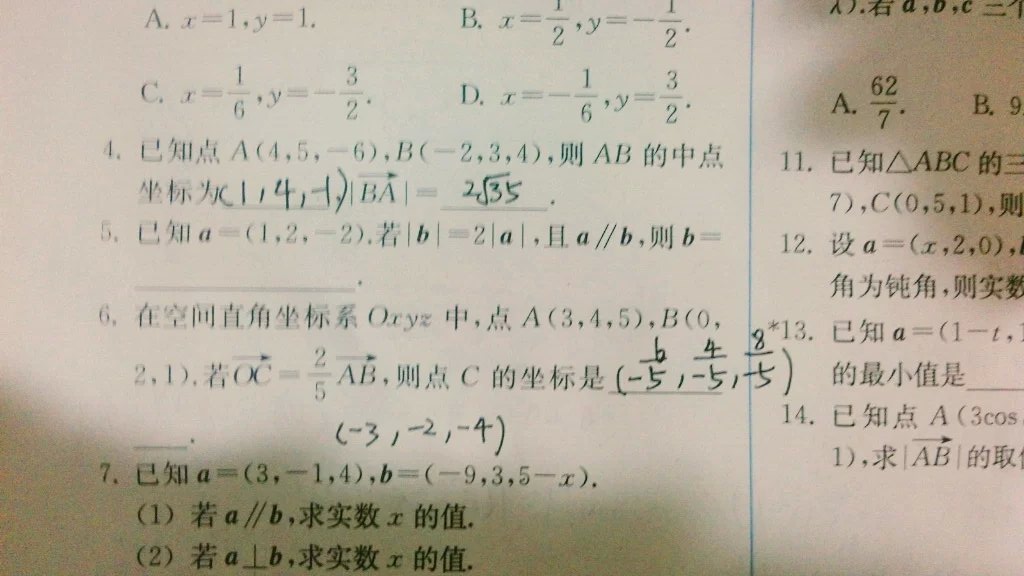 A. x=1,y=1.
B. x=1/2,y=-1/2.
C. x=1/6,y=-3/2.
D. x=-1/6,y=3/2.
4. 已知点 A(4,5,-6),B(-2,3,4),则 AB 的中点
坐标为(1,4,-1)|BA|= 2√35.
5. 已知 a=(1,2,-2).若|b|=2|a|,且 a∥b,则 b=
.
6. 在空间直角坐标系 Oxyz 中,点 A(3,4,5),B(0,
2,1).若OC=2/5AB,则点 C 的坐标是(6/-5,4/-5,8/-5)
.
(-3,-2,-4)
7. 已知 a=(3,-1,4),b=(-9,3,5-x).
(1) 若 a∥b,求实数 x 的值.
(2) 若 a⊥b,求实数 x 的值.
λ).若 a,b,c 三个
A. 62/7.
B. 9
11. 已知△ABC 的三
7),C(0,5,1),则
12. 设 a=(x,2,0),
角为钝角,则实数
*13. 已知 a=(1-t,1
的最小值是
14. 已知点 A(3cos
1),求|AB|的取值